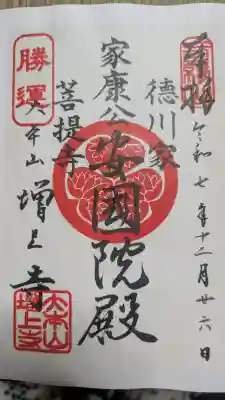 奉拝
令和七年十二月廿六日
徳川家
家康公安國院殿
菩提寺
勝運
大本山増上寺
大本山
増上寺